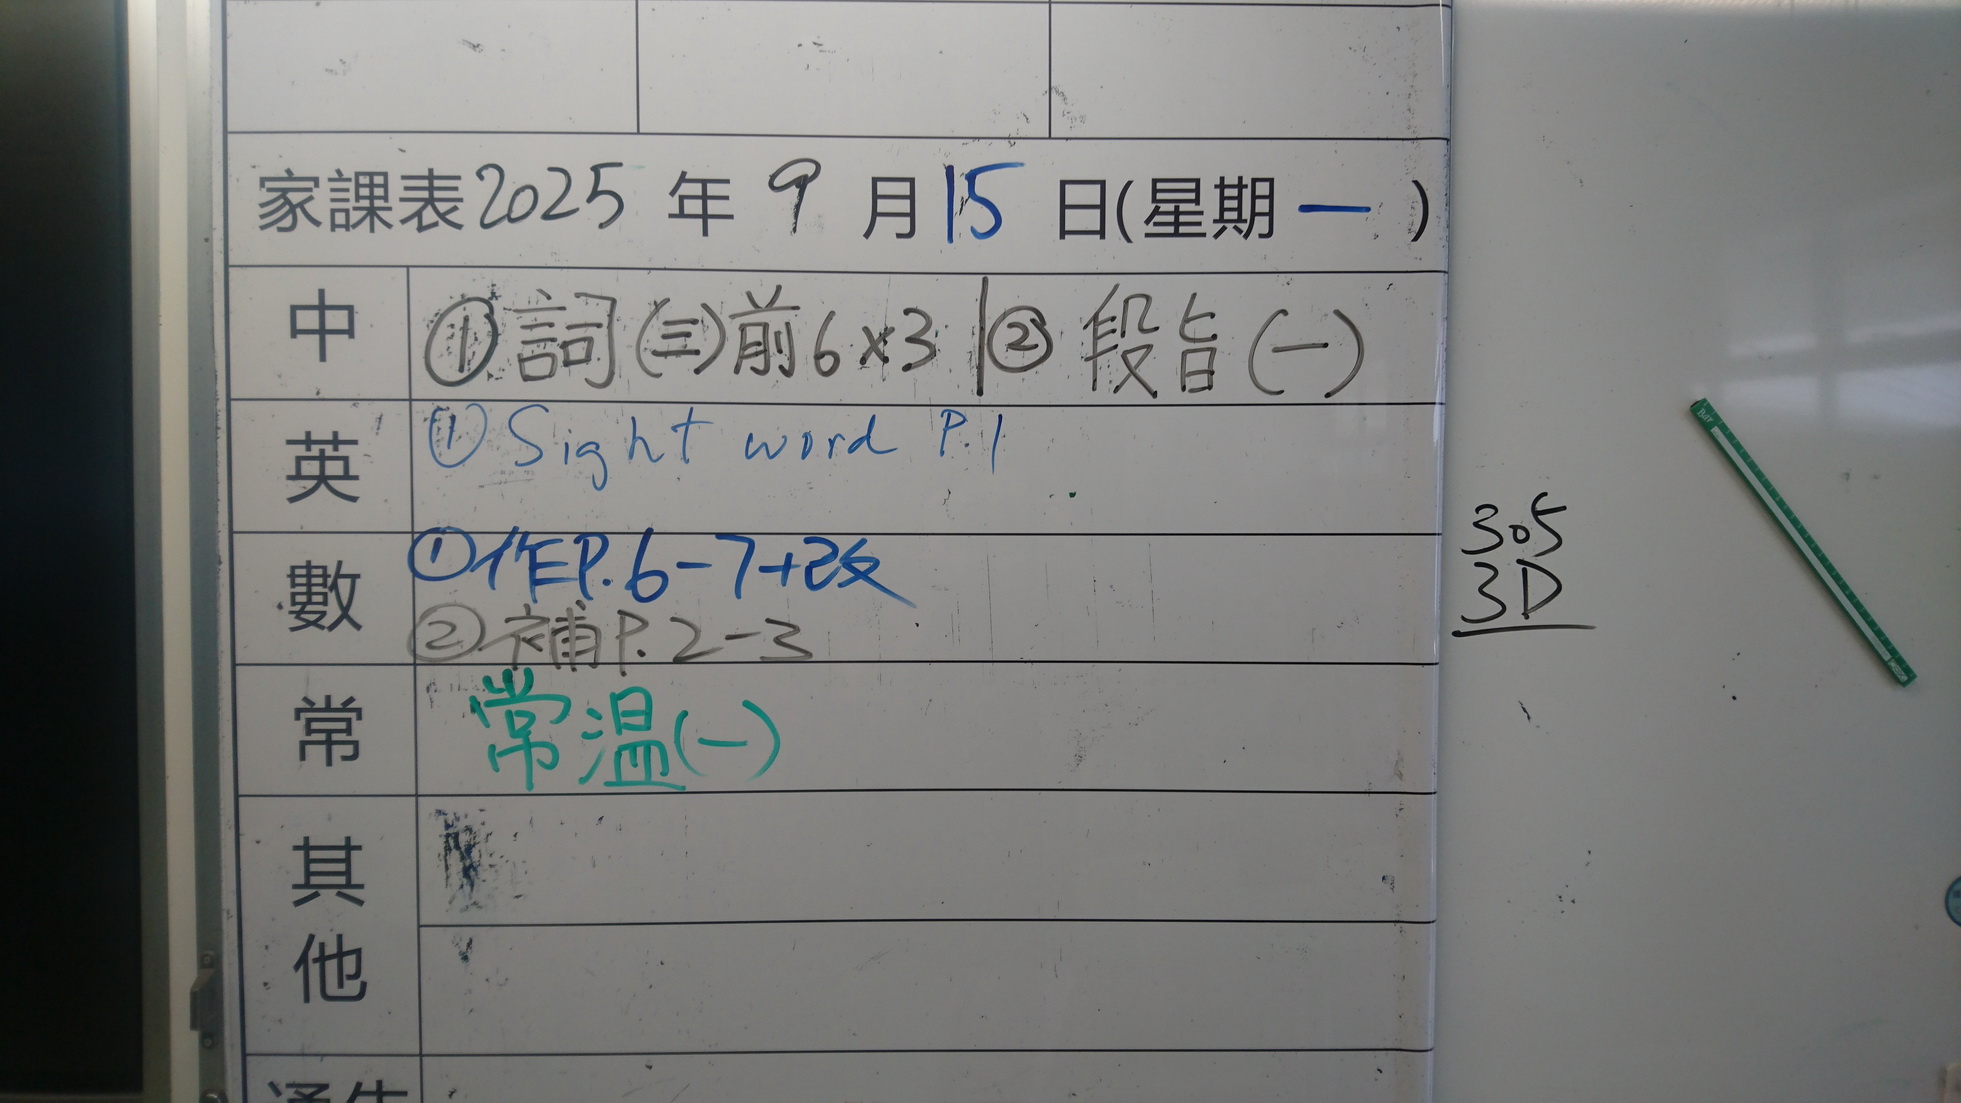 家課表2025年9月15日(星期一)
中 ①詞(三)前6×3|②段旨(一)
英 ①Sight word P.1
數 ①作P.6-7+改
②補P.2-3
常 常溫(一)
其他
通告
305
3D